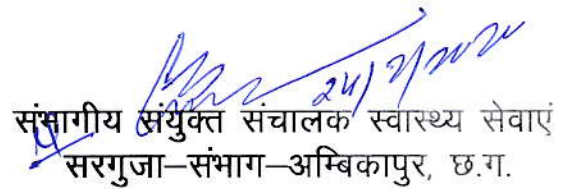 24/2/2020
संभागीय संयुक्त संचालक स्वास्थ्य सेवाएं
सरगुजा–संभाग–अम्बिकापुर, छ.ग.